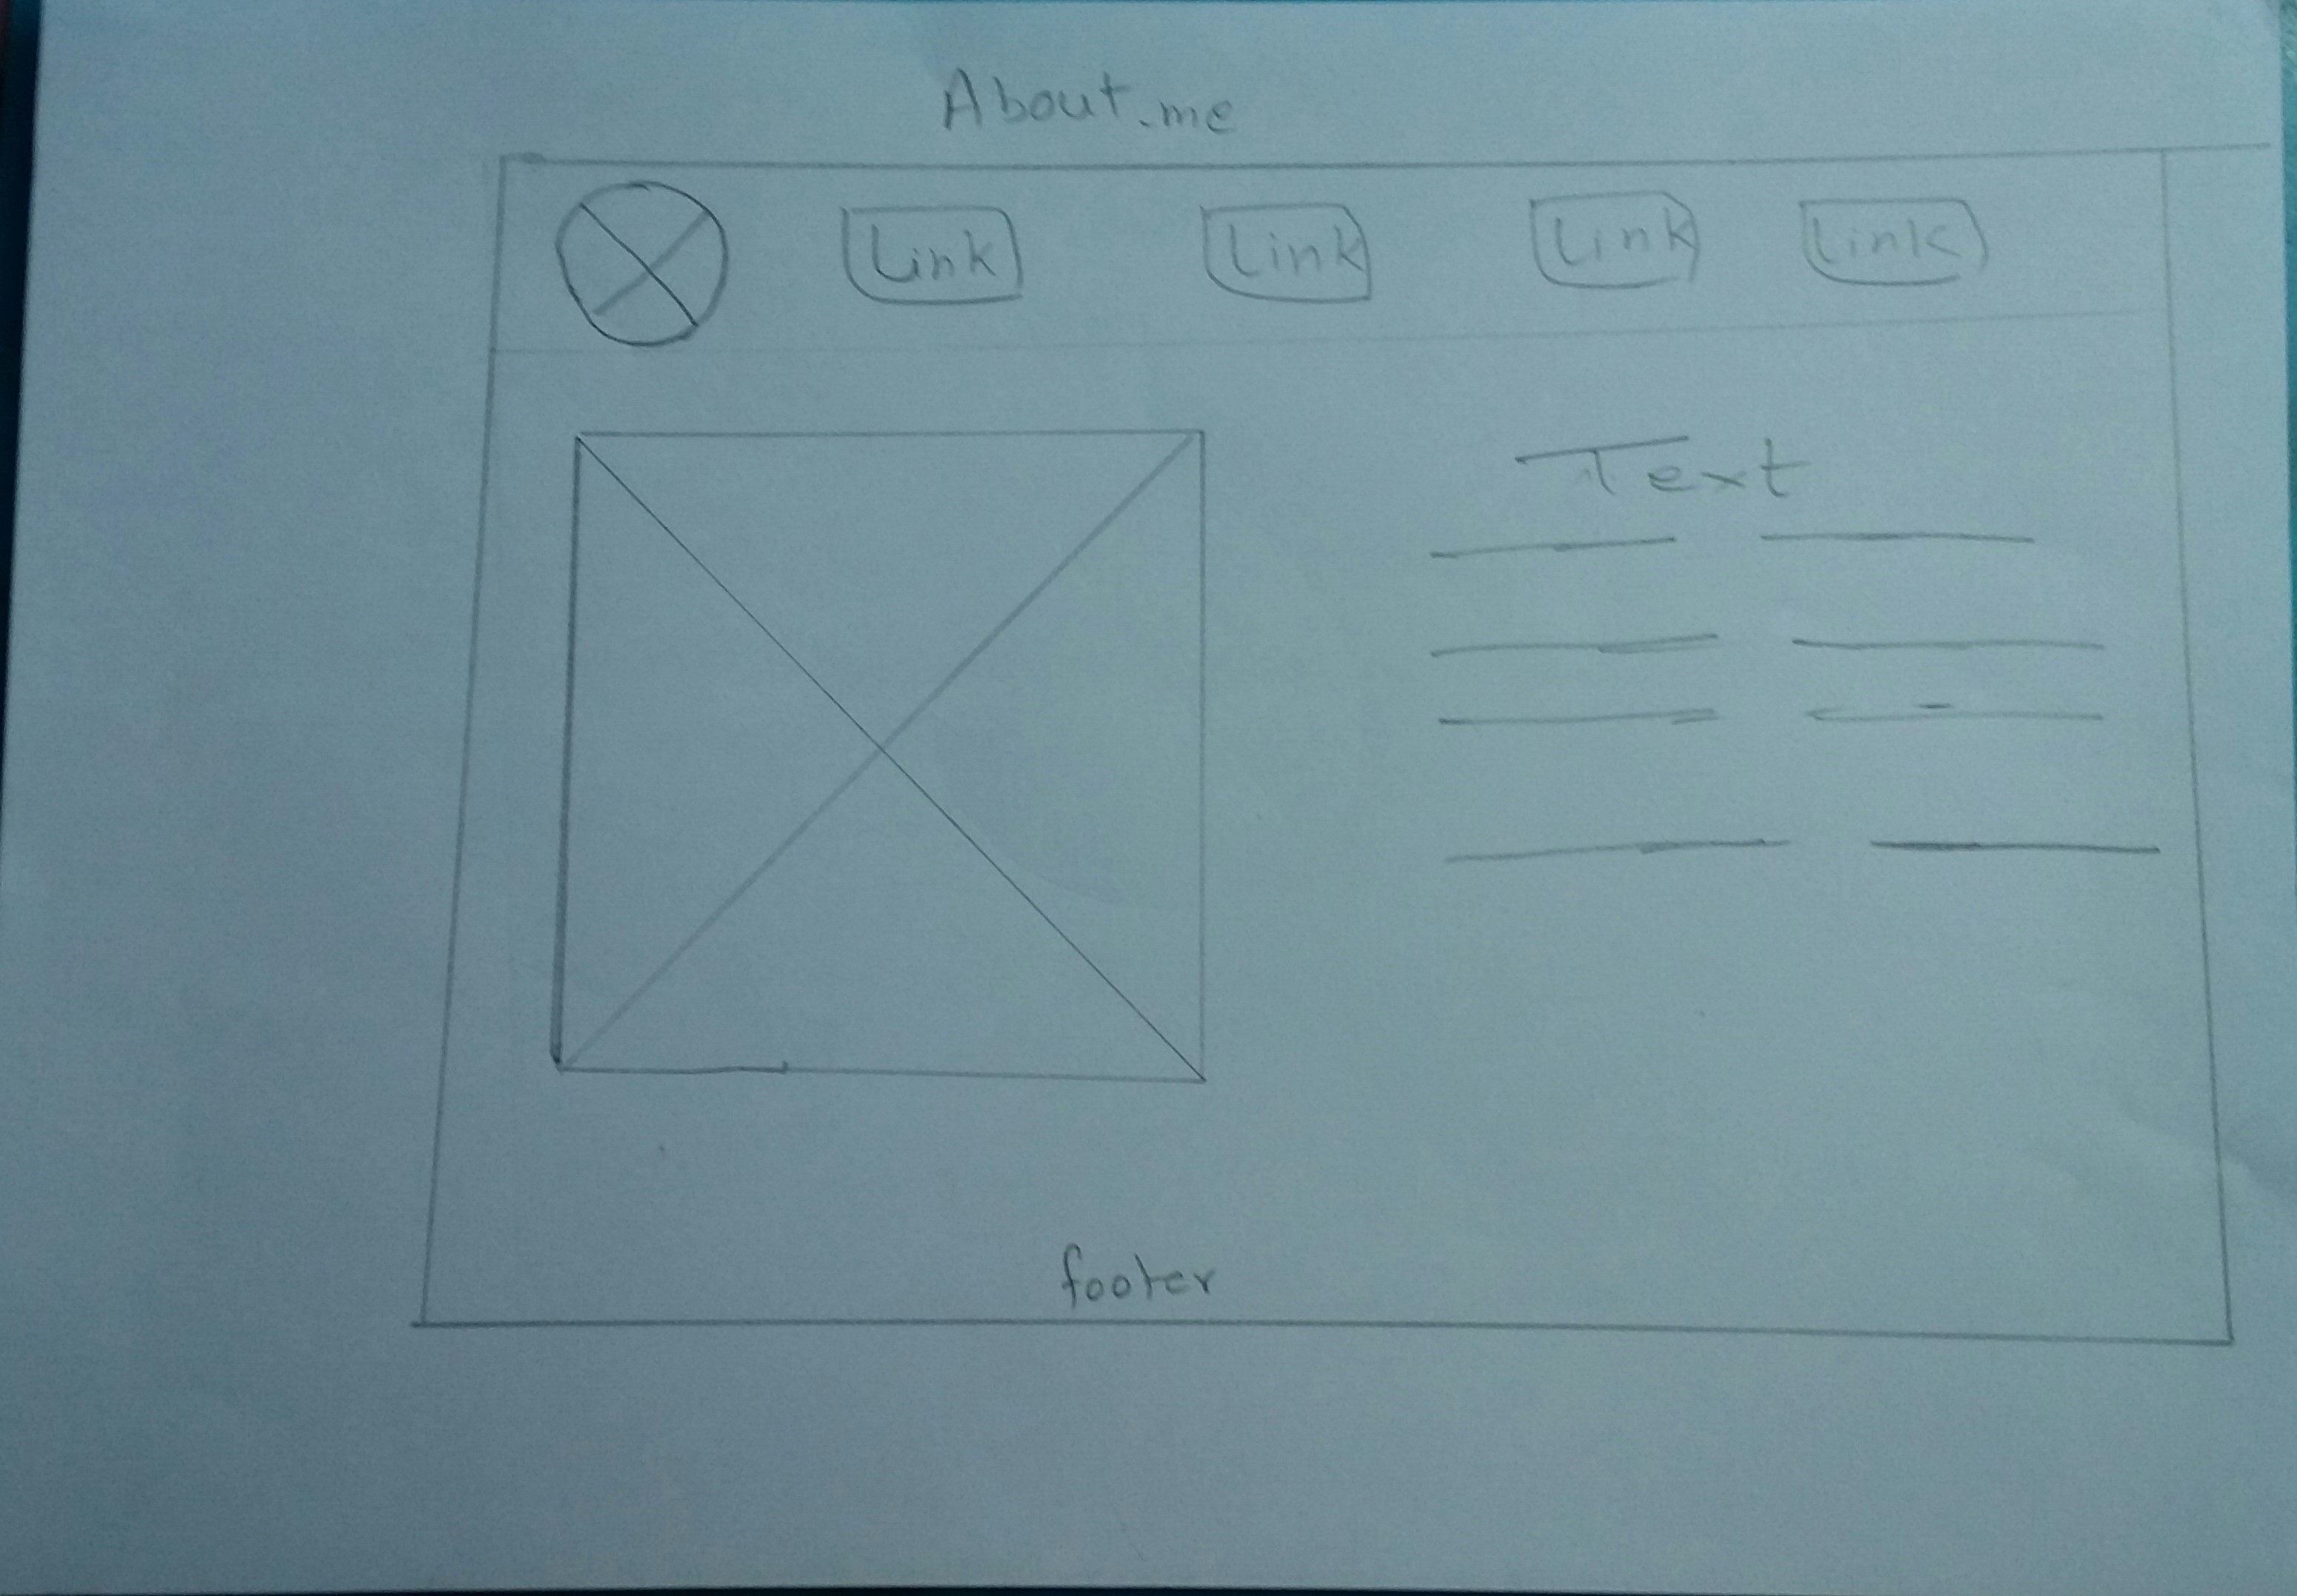 About.me
Link Link Link Link
Text
footer